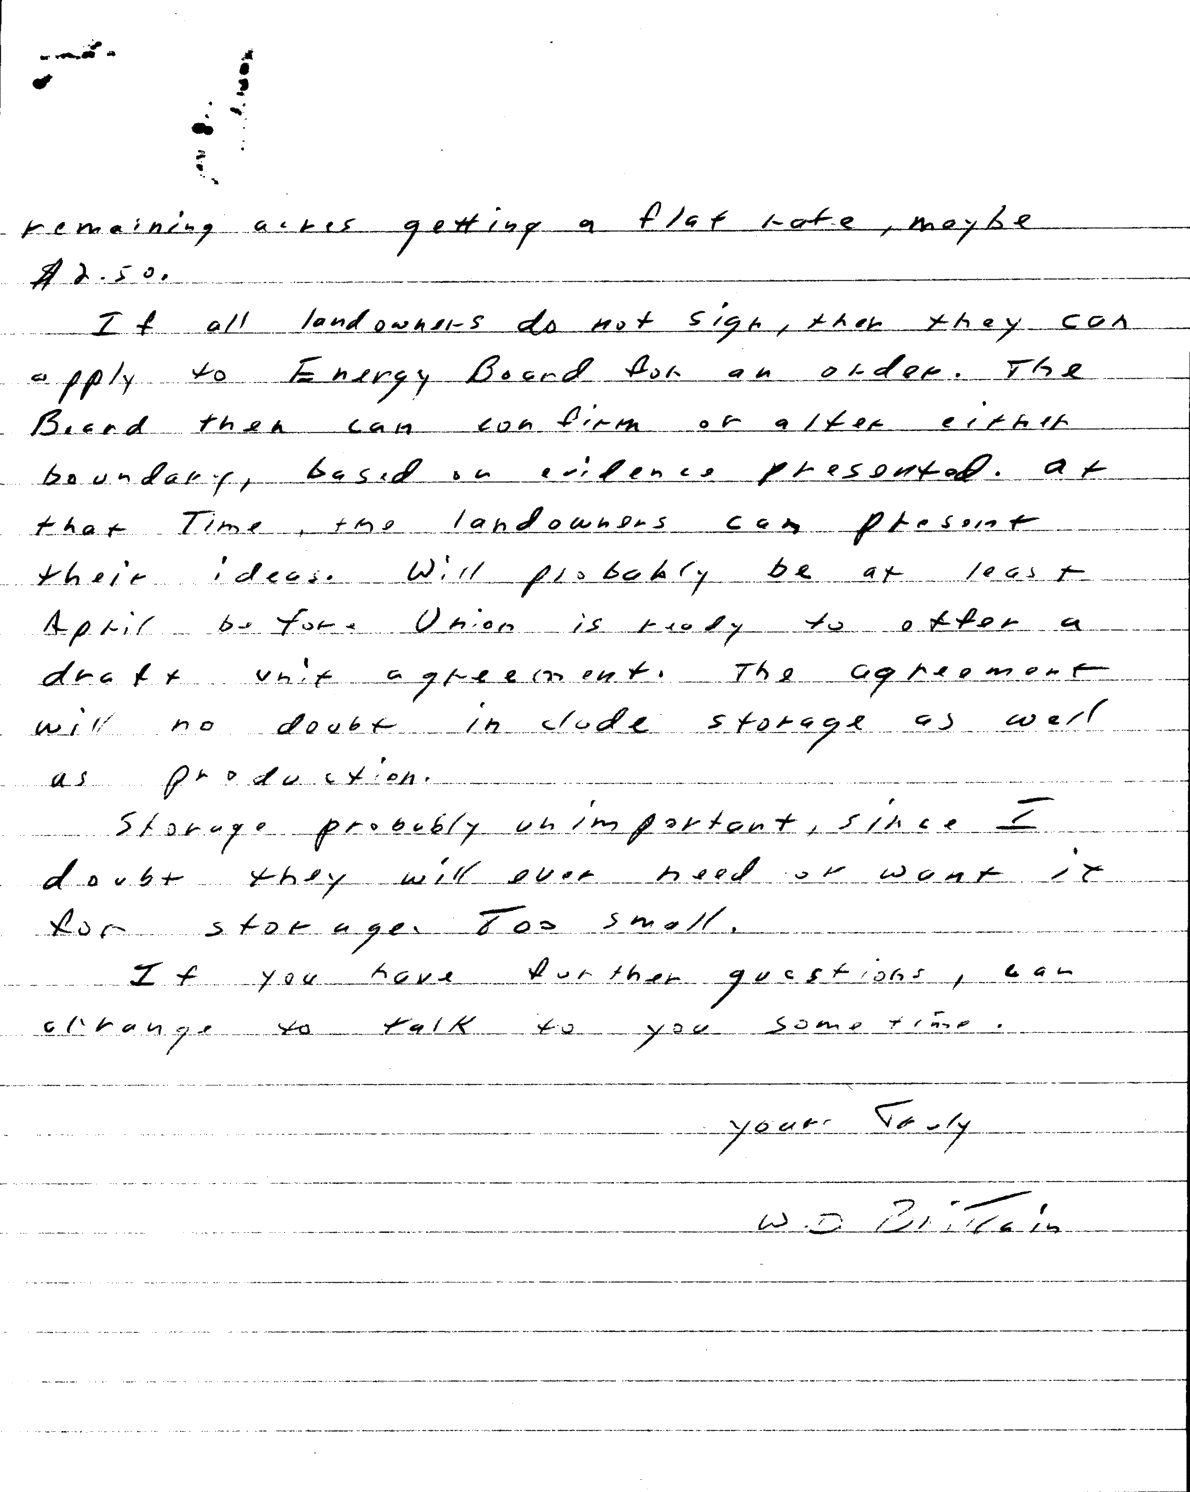 remaining acres getting a flat rate, maybe
$2.50.
If all landowners do not sign, then they can
apply to Energy Board for an order. The
Board then can confirm or alter either
boundary, based on evidence presented. at
that Time, the landowners can present
their ideas. Will probably be at least
April before Union is ready to offer a
draft unit agreement. The agreement
will no doubt include storage as well
as production.
Storage probably unimportant, since I
doubt they will ever need or want it
for storage. Too small.
If you have further questions, can
arrange to talk to you some time.
yours Truly
W.D Brittain